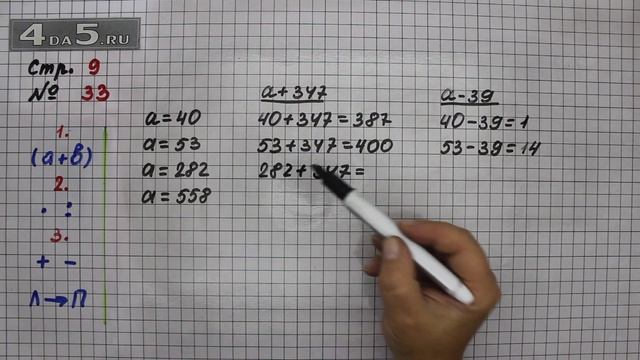 4DA5.RU
Стр. 9
№ 33
1.
(а+в)
2.
· :
3.
+ -
Л→П
a = 40
a = 53
a = 282
a = 558
a + 347
40 + 347 = 387
53 + 347 = 400
282 + 347 =
a - 39
40 - 39 = 1
53 - 39 = 14